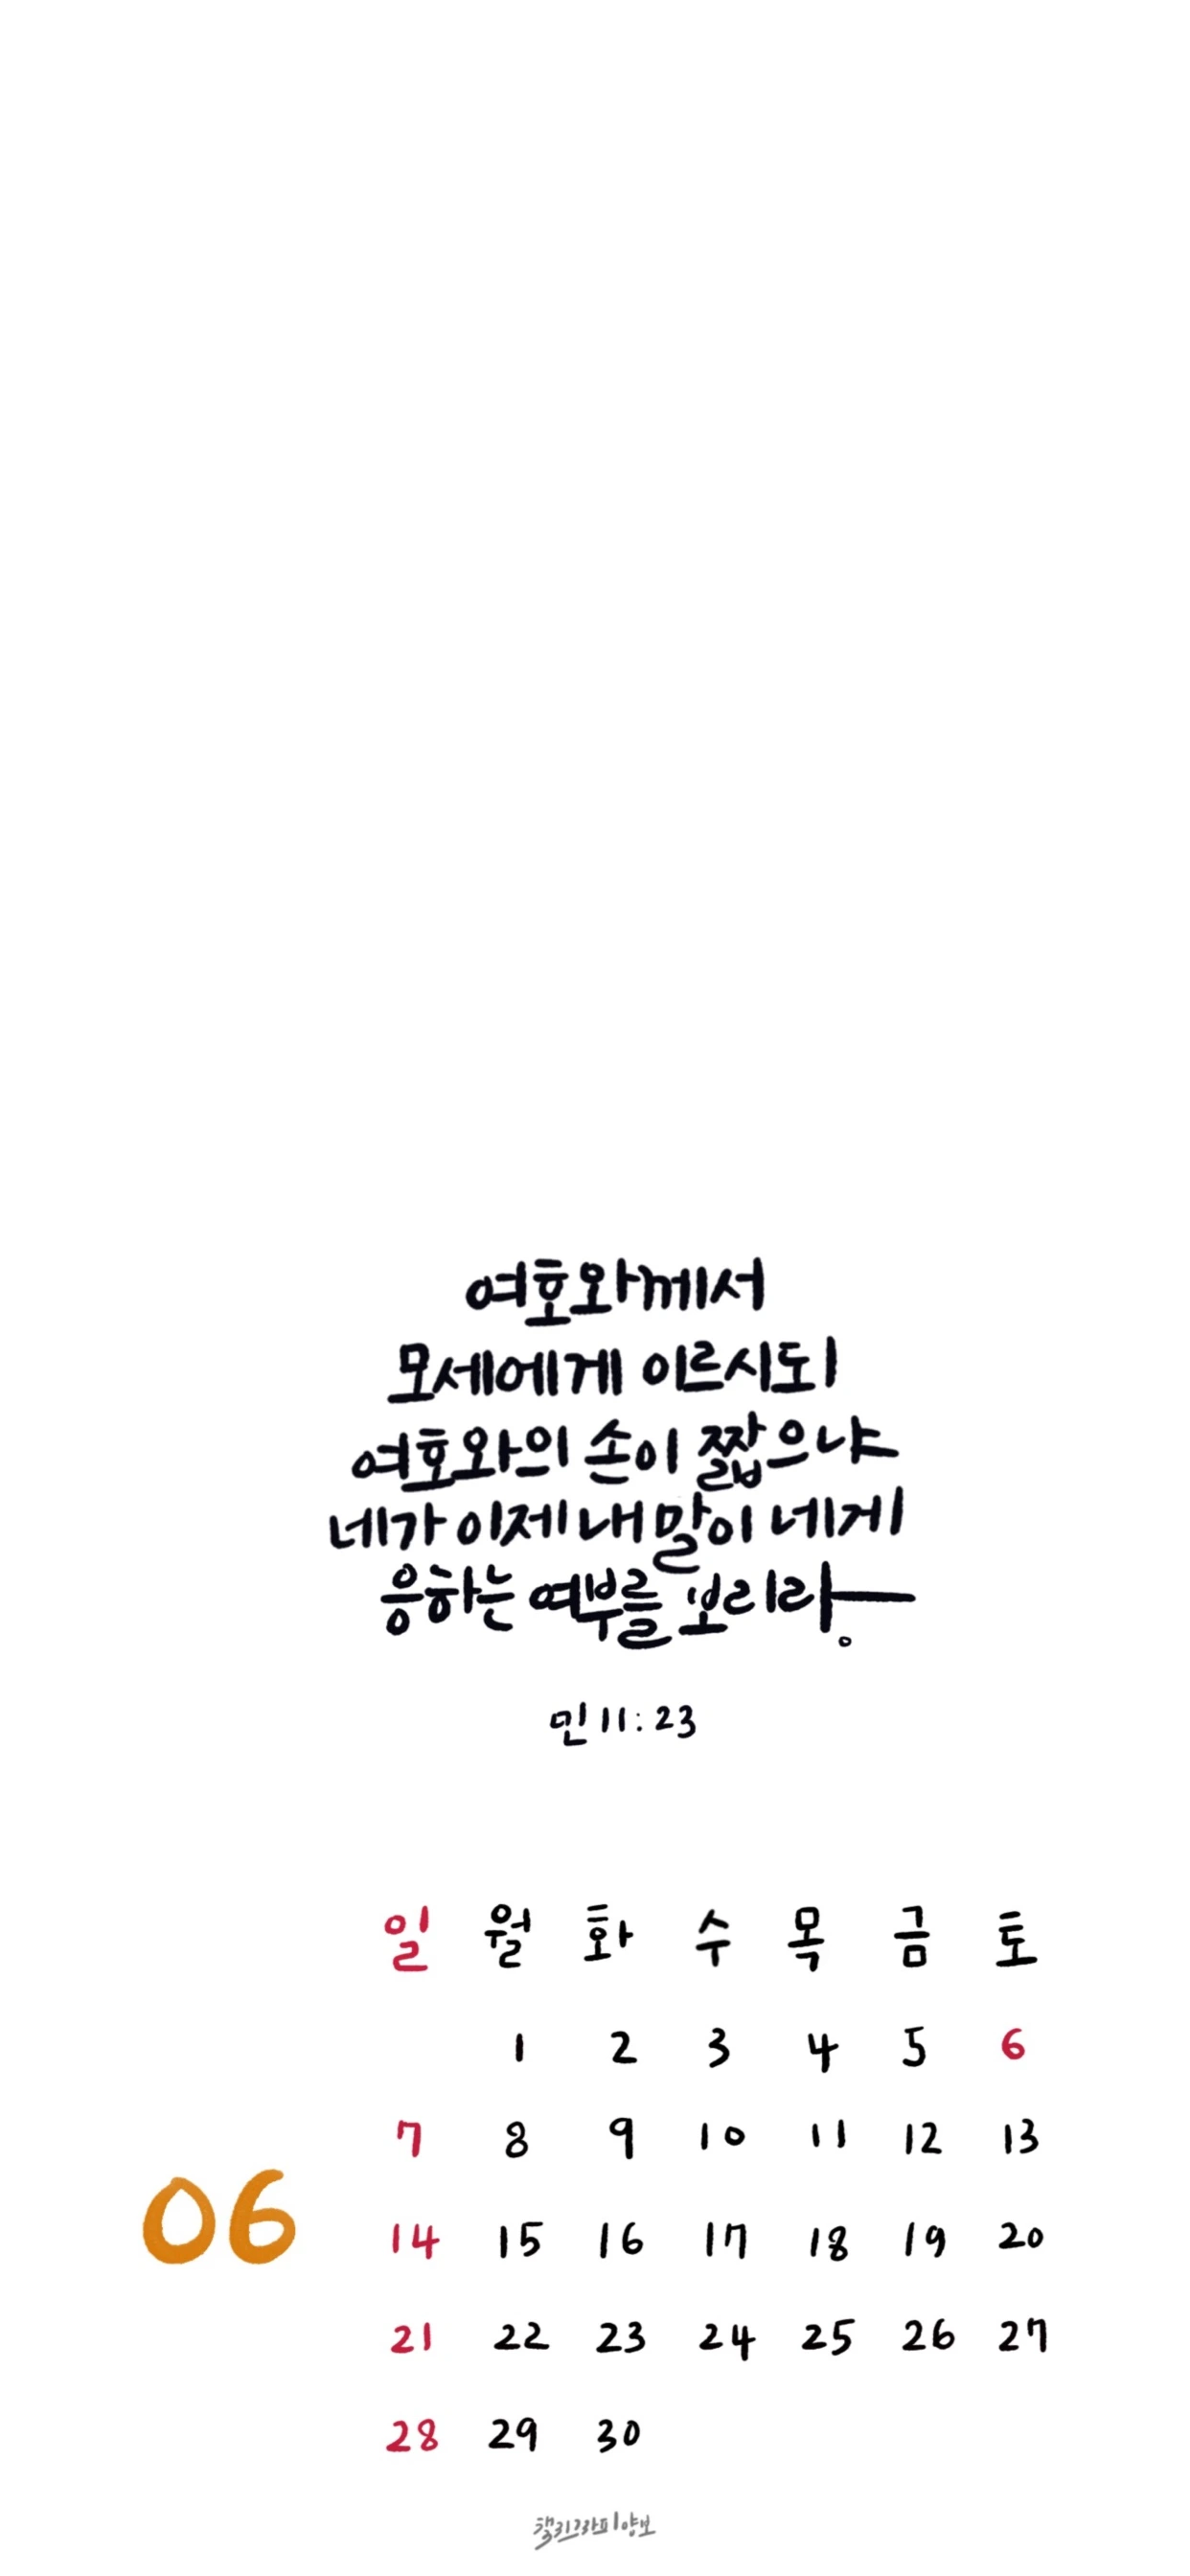 여호와께서
모세에게 이르시되
여호와의 손이 짧으냐
네가 이제 내 말이 네게
응하는 여부를 보리라
민 11:23
일 월 화 수 목 금 토
1 2 3 4 5 6
7 8 9 10 11 12 13
06
14 15 16 17 18 19 20
21 22 23 24 25 26 27
28 29 30
캘리그라피양보